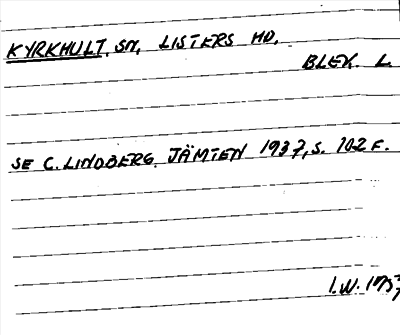 KYRKHULT SN, LISTERS HD,
BLEK. L.
SE C. LINDBERG. JÄMTEN 1937, S. 102 F.
I.W.